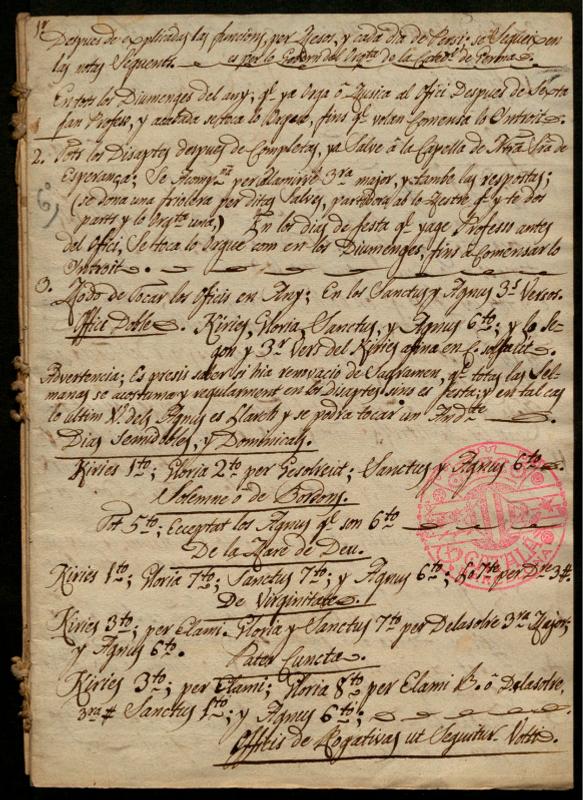 Despues de explicadas las funcions, per Mesos, y cada dia de Persi; se Segueixen
las notas Seguents es per lo Govern del Orgta de la Catedl. de Gerona
1 En tots los Diumenges del any; ql. ya Orga ô Musica al Ofici Despues de Sexta
fan Profeso, y acabada se toca lo Orgue, fins ql. volan Comensa lo Introit.
2. Tots los Disaptes despues de Completas, ya Salve â la Capella de Ntra. Sra. de
Esperança; Se Acompña. per Alamirre 3ra major, y tambe las respostas;
(se dona una friolera per ditas Salves, partidora ab lo Mestre ql. y te dos
parts y lo Orgta. una,) En los dias de festa ql. yage Professo antes
del Ofici, Se toca lo Orgue com en los Diumenges, fins a Comensar lo
Introit.
3. Modo de Tocar los Oficis en Any; En los Sanctus y Agnus 3s. Versos.
Offici Doble. Kiries, Gloria, Sanctus, y Agnus 6to; y lo se-
gon y 3r. Vers del Kiries afina en C. solfaut.
Advertencia; Es presis saber si hia renovacio de Sagramen, ql. totas las Set-
manas se acostuma y regularment en los disaptes sino es festa; y en tal cas
lo ultim V. dels Agnus es llarch y se podra tocar un Andte.
Dias Semidobles, y Dominicals.
Kiries 1to; Gloria 2to per Gesolreut; Sanctus y Agnus 6to.
Solemne ô de Bordons.
Tot 5to; Exceptat los Agnus ql. son 6to
De la Mare de Deu.
Kiries 1to; Gloria 7to; Sanctus 7to; y Agnus 6to; lo 7te per Dre 3#.
De Virginitate.
Kiries 3to; per Elami. Gloria y Sanctus 7to per Delasolre 3ra. Major;
y Agnus 6to. Pater Cuncta.
Kiries 3to; per Elami; Gloria 8to per Elami B. ô Delasolre,
3ra # Sanctus 1to; y Agnus 6to;
Officis de Rogativas ut Seguitur